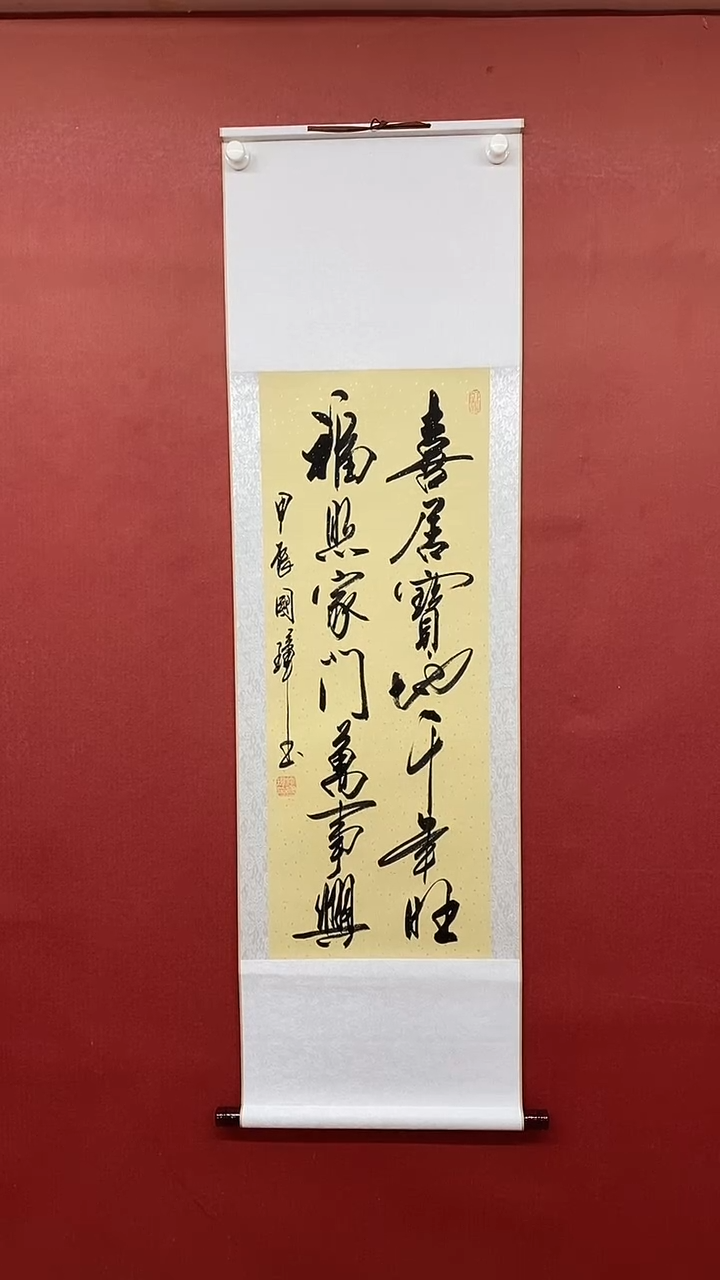 喜居寶地千年旺
福照家門萬事興
甲辰國璋书